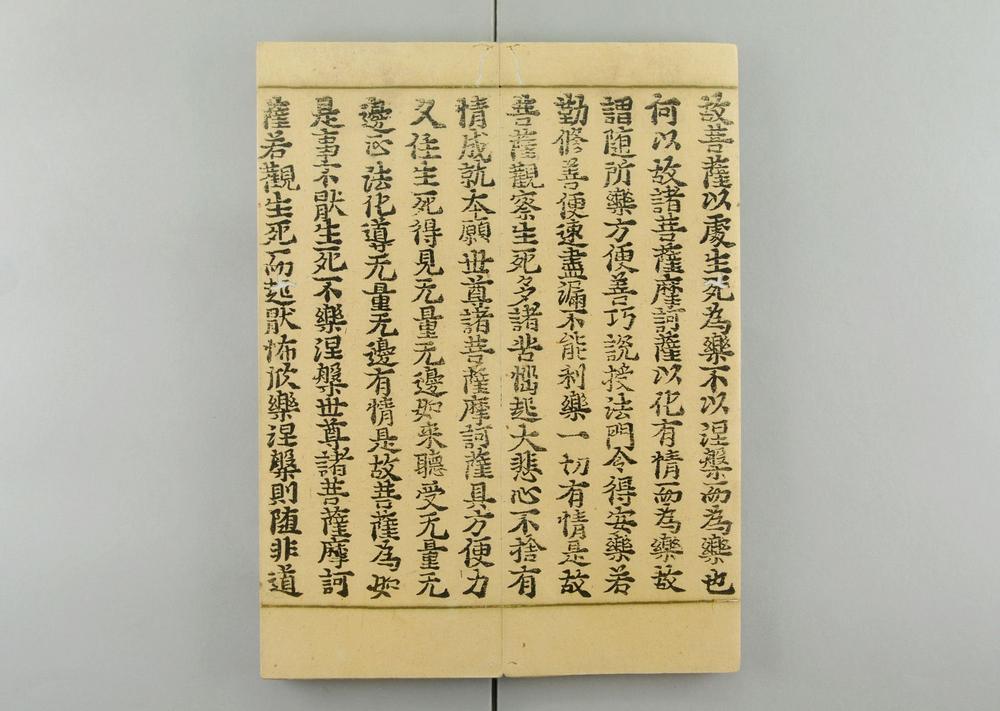 故菩薩以處生死為樂不以涅槃而為樂也
何以故諸菩薩摩訶薩以化有情而為樂故
謂随所樂方便善巧說授法門令得安樂若
勤修善便速盡漏不能利樂一切有情是故
菩薩觀察生死多諸苦惱起大悲心不捨有
情成就本願世尊諸菩薩摩訶薩具方便力
又住生死得見无量无邊如来聽受无量无
邊正法化導无量无邊有情是故菩薩為如
是事不猒生死不樂涅槃世尊諸菩薩摩訶
薩若觀生死而起猒怖欣樂涅槃則随非道